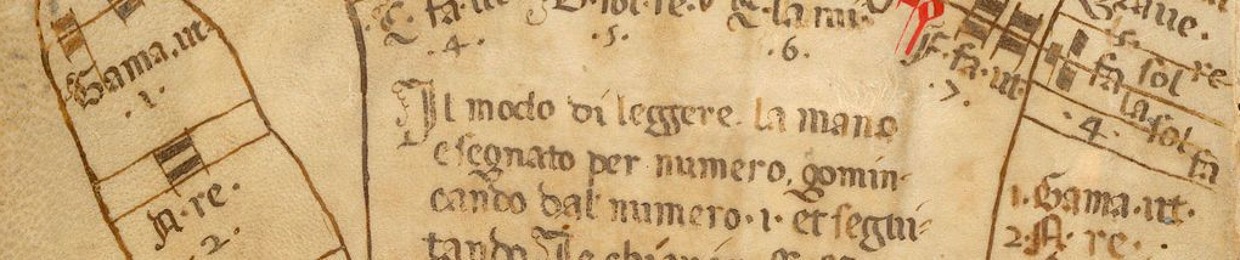 C. fa.ut D.sol.re. E.la mi
.4. .5. .6.
F.fa.ut
.7.
Gama.ut.
.1.
A.re.
.2.
Il modo di leggere la mano
e segnato per numero, gomin-
cando dal numero.1. et segui-
tando
Aue.
fa sol re
la sol fa
.4.
1. Gama.ut.
2. A. re.